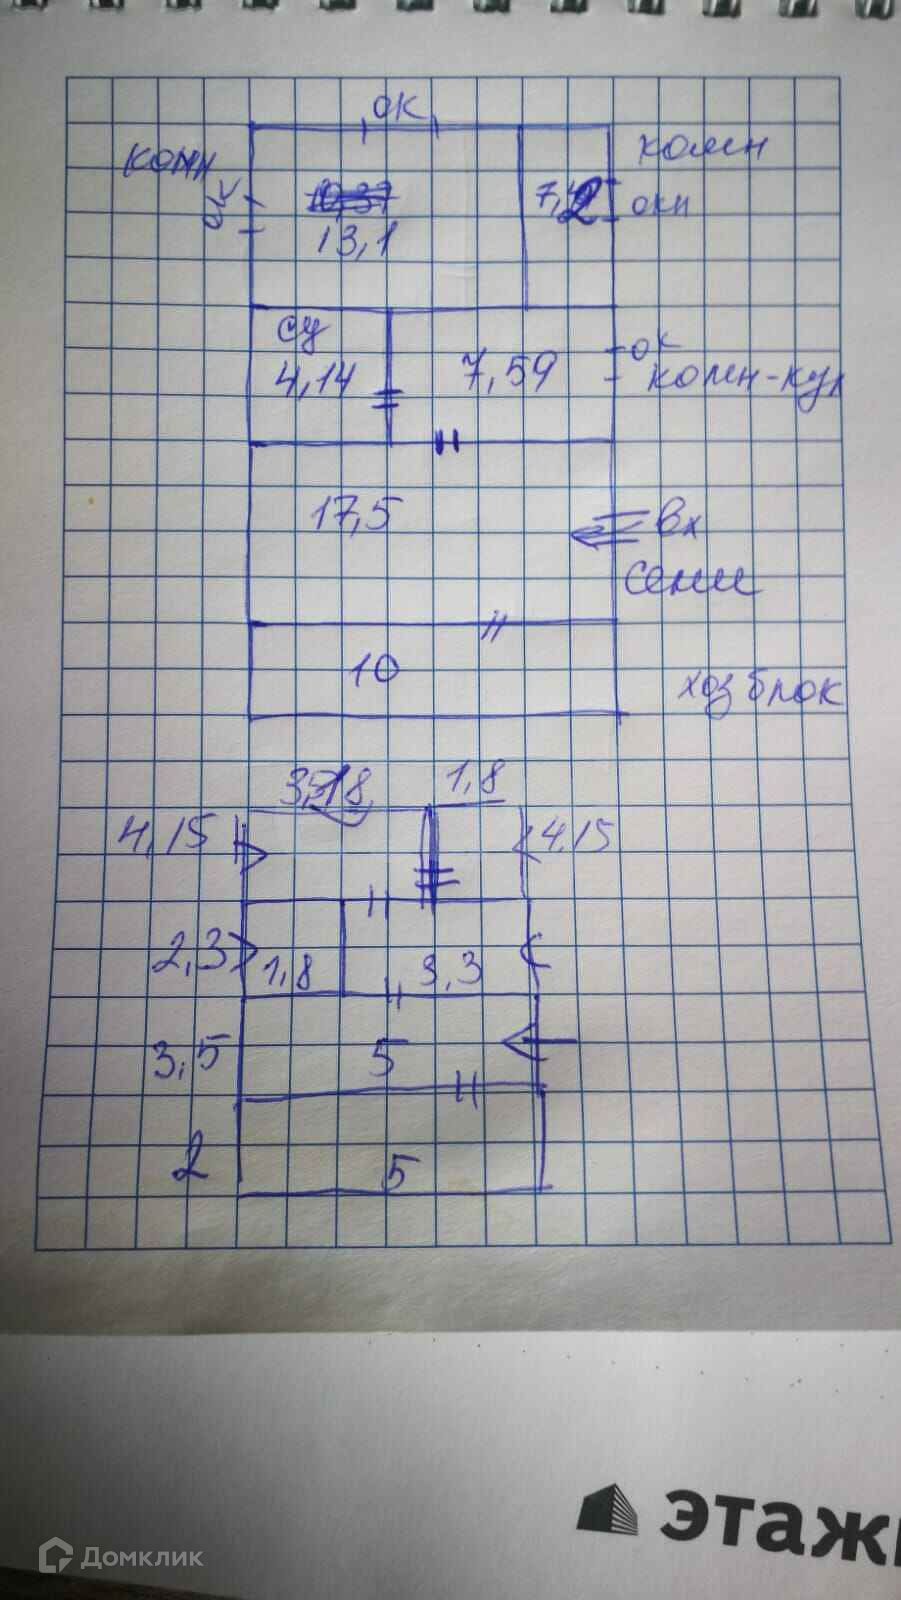 ок
комн
комн
ок
7,2
окн
13,1
су
4,14
7,59
ок
комн-кух
17,5
Вх
Сени
10
хозблок
1,8
4,15
4,15
2,3
1,8
3,3
3,5
5
2
5
этажи
Домклик